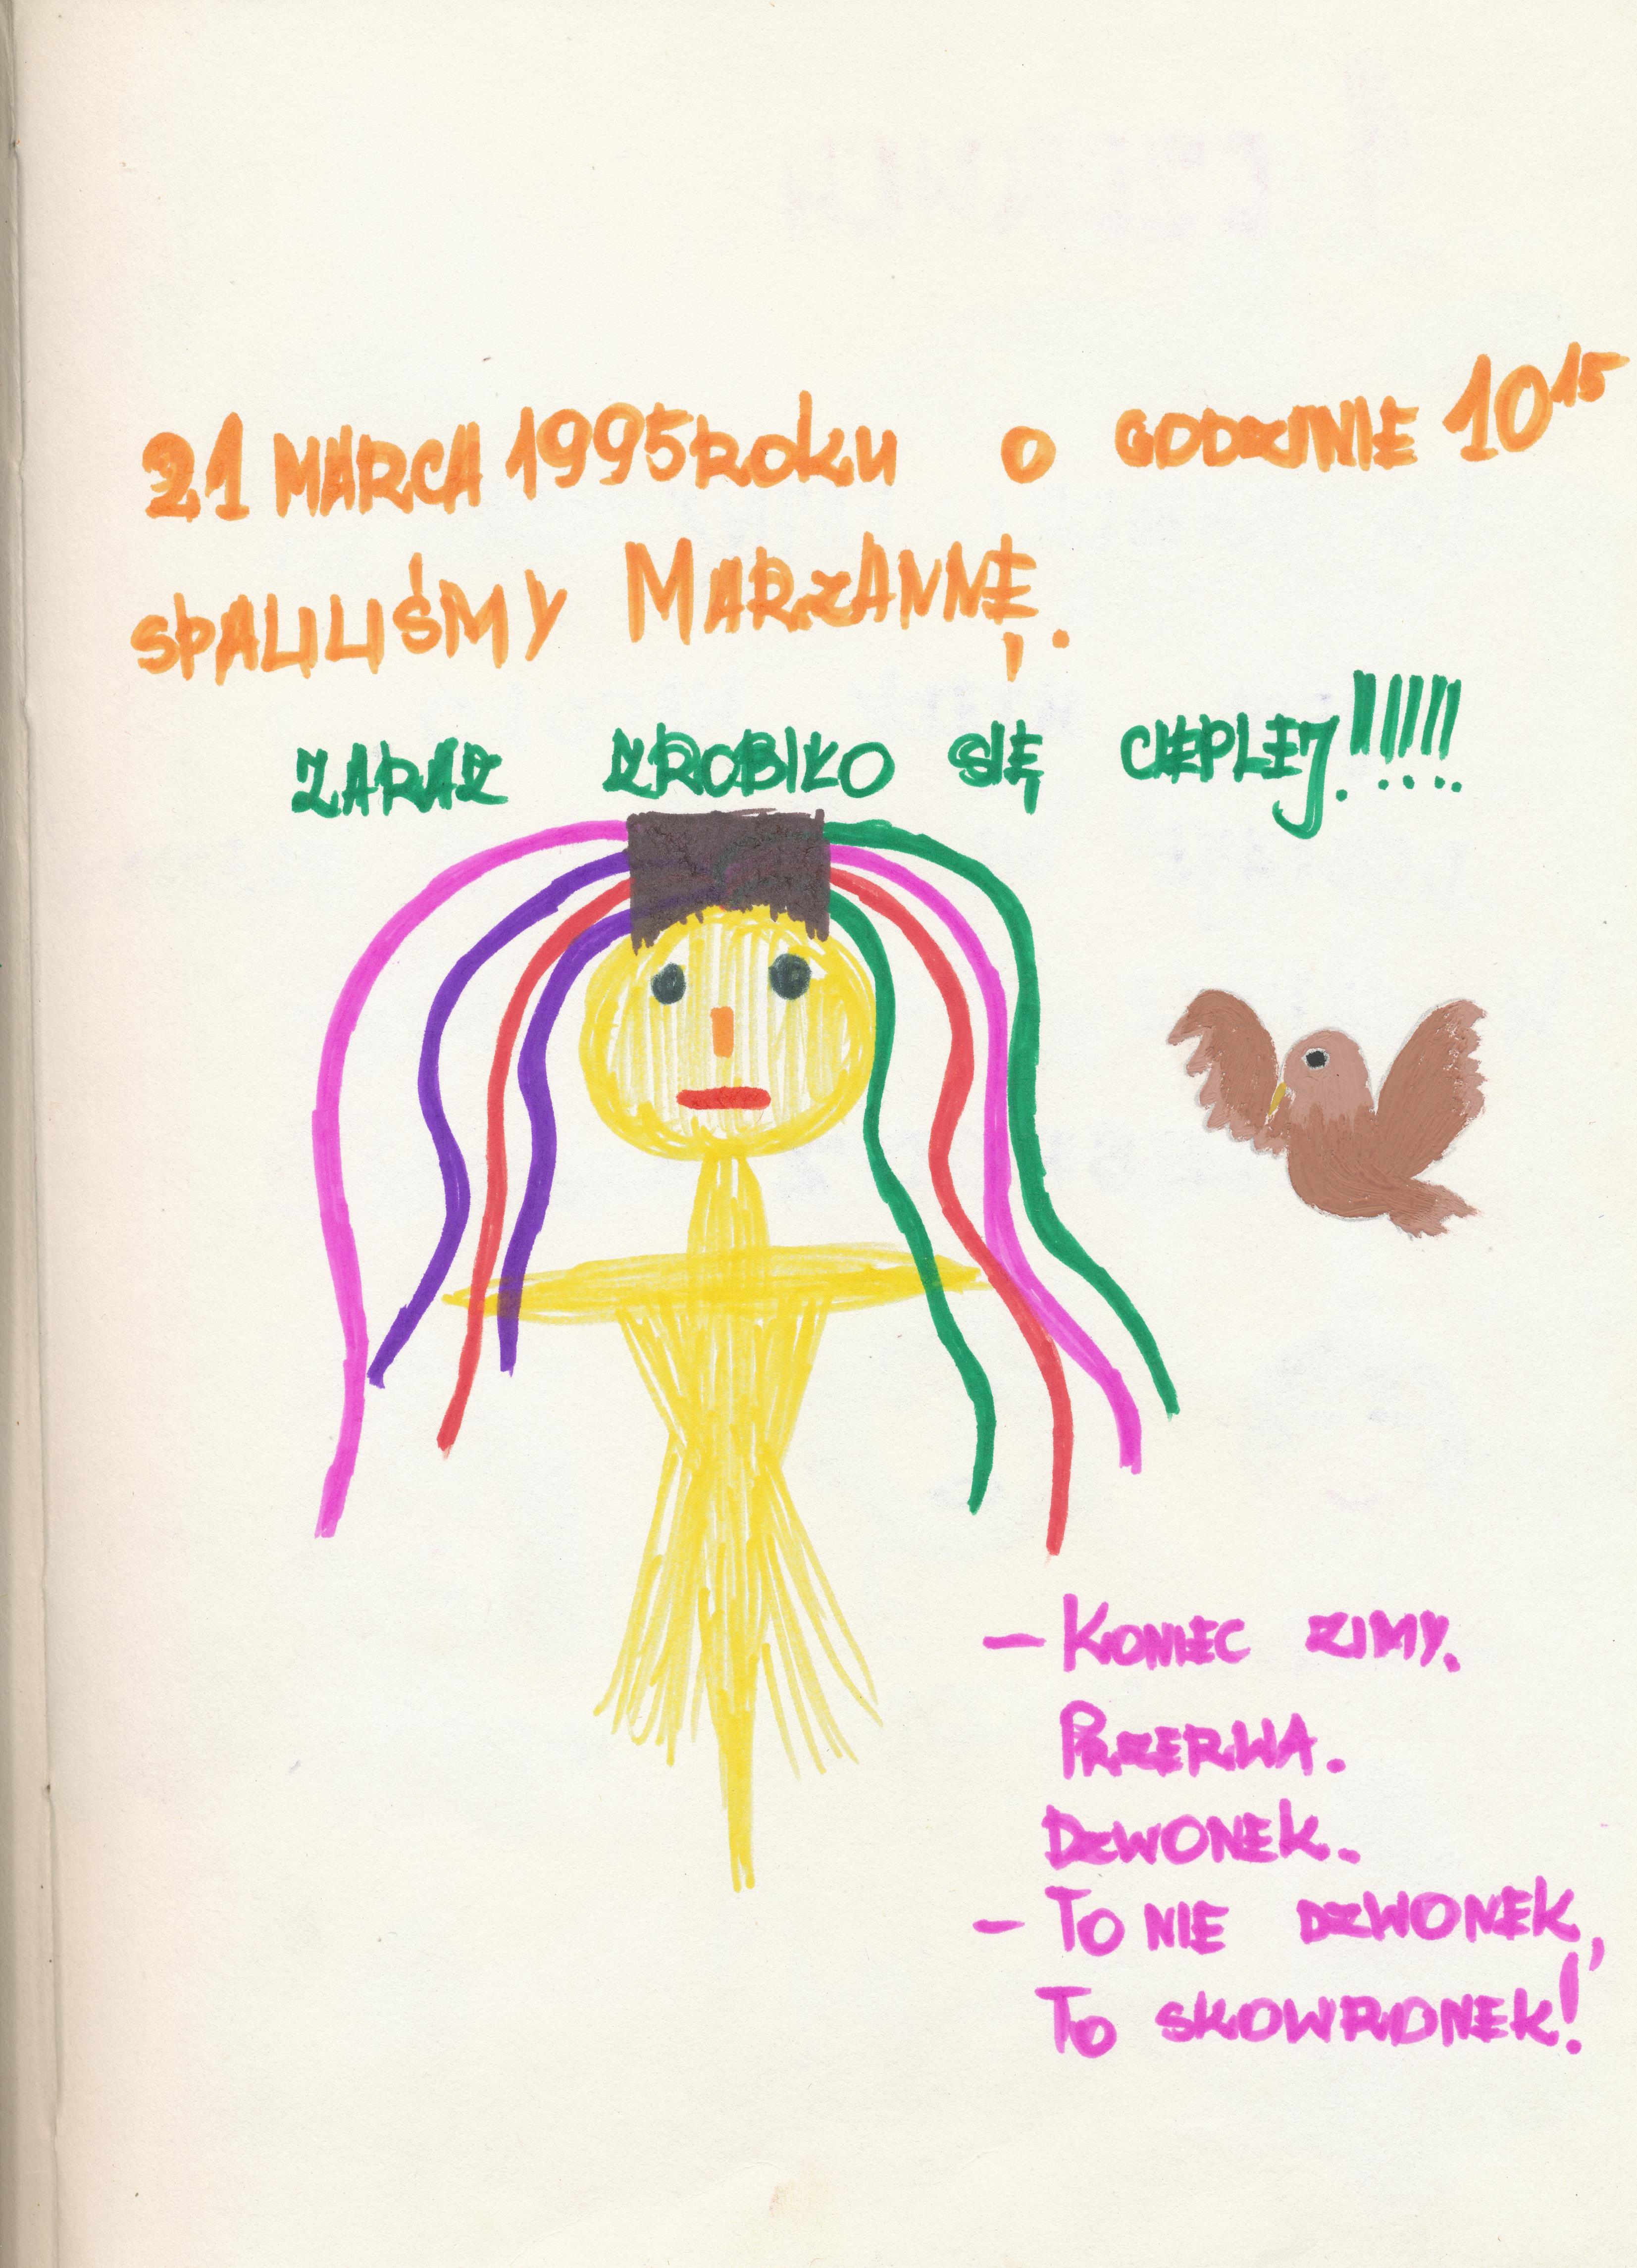 21 MARCA 1995 ROKU O GODZINIE 10¹⁵
SPALILIŚMY MARZANNĘ.
ZARAZ ZROBIŁO SIĘ CIEPLEJ!!!!!
– KONIEC ZIMY.
PRZERWA.
DZWONEK.
– TO NIE DZWONEK,
TO SKOWRONEK!